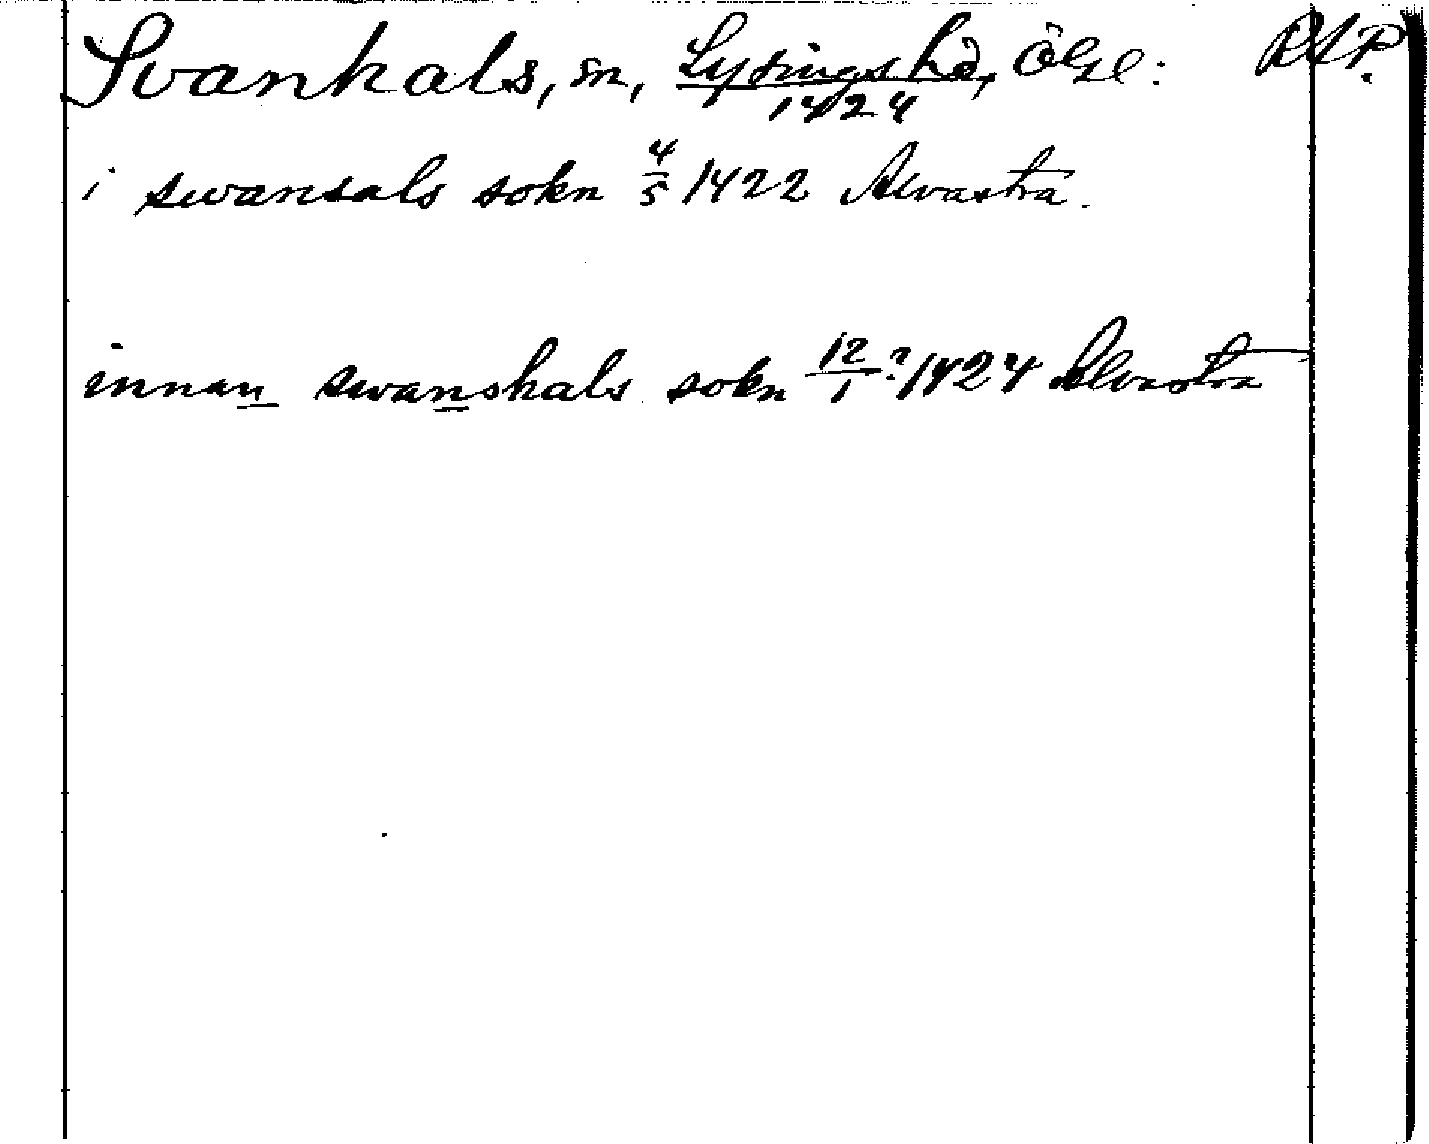 Svanhals, sn, Lysings hd, Ög. RAP.
1424
i swansals sokn 4/5 1422 Alvastra.
innan swanshals sokn 12/1 ? 1424 Alvastra